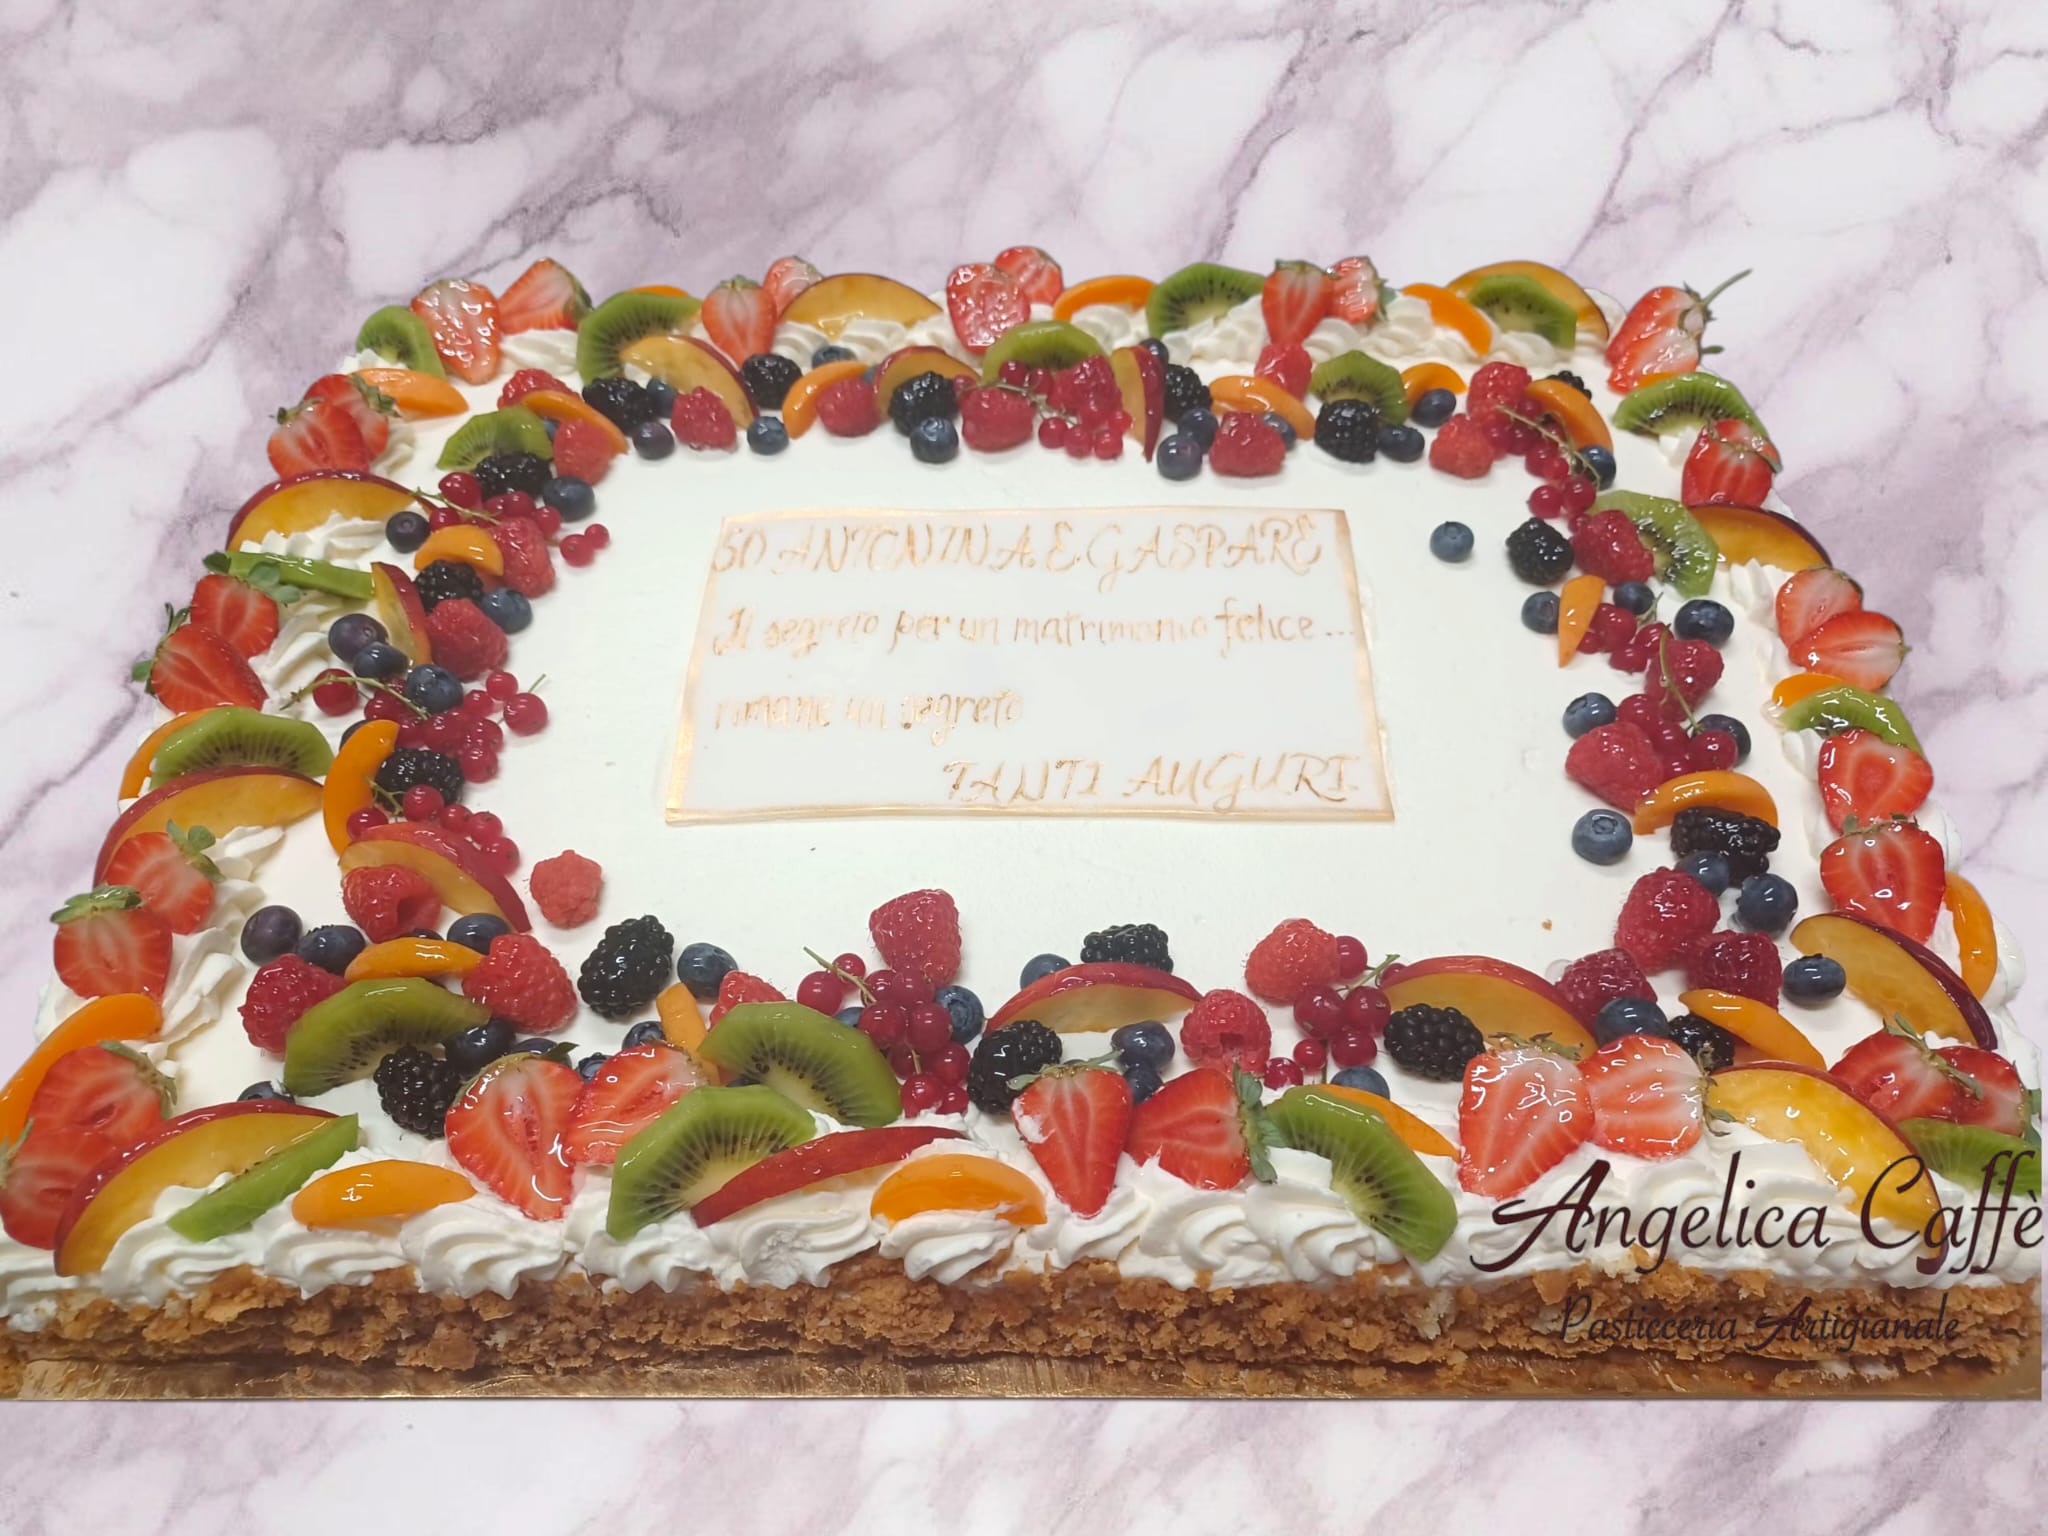 50 ANTONINA E GASPARE
Il segreto per un matrimonio felice...
rimane un segreto
TANTI AUGURI
Angelica Caffè
Pasticceria Artigianale